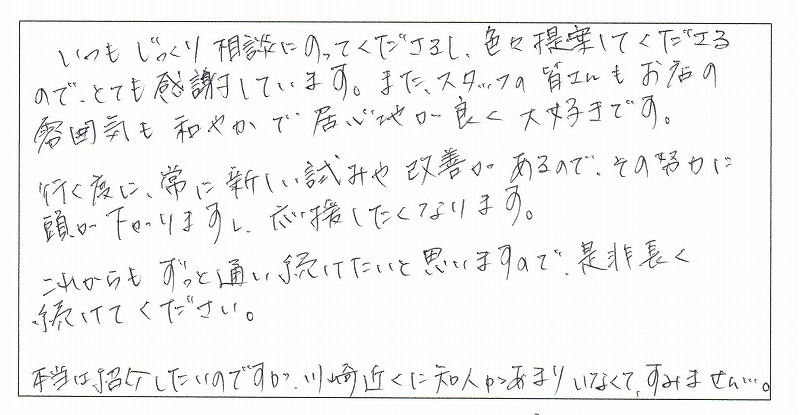 いつもじっくり相談にのってくださるし、色々提案してくださる
ので、とても感謝しています。また、スタッフの皆さんもお店の
雰囲気も和やかで居心地が良く大好きです。
行く度に、常に新しい試みや改善があるので、その努力に
頭が下がりますし、応援したくなります。
これからもずっと通い続けたいと思いますので、是非長く
続けてください。
本当は紹介したいのですが、川崎近くに知人があまりいなくて、すみません…。